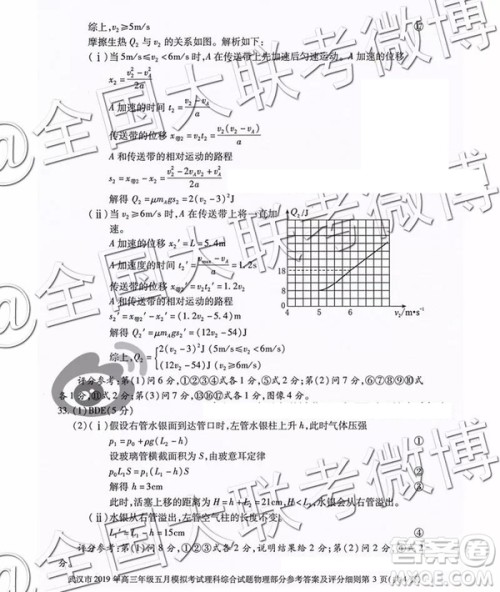 综上,v₂≥5m/s ⑰
摩擦生热 Q₂ 与 v₂ 的关系如图。解析如下:
(ⅰ)当 5m/s≤v₂<6m/s 时,A 在传送带上先加速后匀速运动。A 加速的位移
x₂=(v₂²-v_A²)/2a
A 加速的时间 t₂=(v₂-v_A)/a
传送带的位移 x带2=v₂t₂=v₂(v₂-v_A)/a
A 和传送带的相对运动的路程
s₂=x带2-x₂=(v₂²-2v_Av₂+v_A²)/2a
解得 Q₂=μm_Ags₂=2(v₂-3)²J
(ⅱ)当 v₂≥6m/s 时,A 在传送带上将一直加
速。
A 加速的位移 x₂′=L=5.4m
传送带的位移 x带2′=v₂t₂′=1.2v₂
A 和传送带的相对运动的路程
s₂′=x带2′-x₂′=(1.2v₂-5.4)m
解得 Q₂=μm_Ags₂′=(12v₂-54)J
综上,Q₂={2(v₂-3)²J (5m/s≤v₂<6m/s)
(12v₂-54)J (v₂≥6m/s)
Q₂/J
18
8
4 5 6 7 8 v₂/m·s⁻¹
评分参考:第(1)问 6 分,①②③④式各 1 分,⑤式 2 分;第(2)问 7 分,⑥⑦⑧⑨⑪式各 1
分,⑩式 2 分;第(3)问 7 分,
33.(1)BDE(5 分)
(2)(ⅰ)假设右管水银面到达管口时,左管水银柱上升 h,此时气体压强
p₁=p₀+ρg(L₂-h) ①
设玻璃管横截面积为 S,由玻意耳定律
p₀L₁S=p₁(L₁-h)S ②
解得 h=3cm ③
此时,活塞上移的距离为 L₂+L₃+h=21cm,水银会从右管溢出。 ④
(ⅱ)水银从右管溢出,左管空气柱的长度不变
L₁-h=15cm ⑤
评分参考:第(ⅰ)问 8 分,①式 2 分,②式 3 分,③式 1 分,说明结果给 2 分;第(ⅱ)问 2 分,⑤式 2 分。
武汉市 2019 年高三年级五月模拟考试理科综合试题物理部分参考答案及评分细则第 3 页(共 4 页)
@全国大联考微博
@全国大联考微博
@全国大联考微博
答案圈